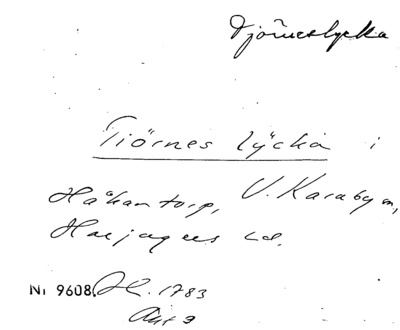 Tjörneslycka
Tiörnes lycka i
Håkantorp, V. Karabyn,
Harjagers hd.
Nr 9608. 1783
Akt 9